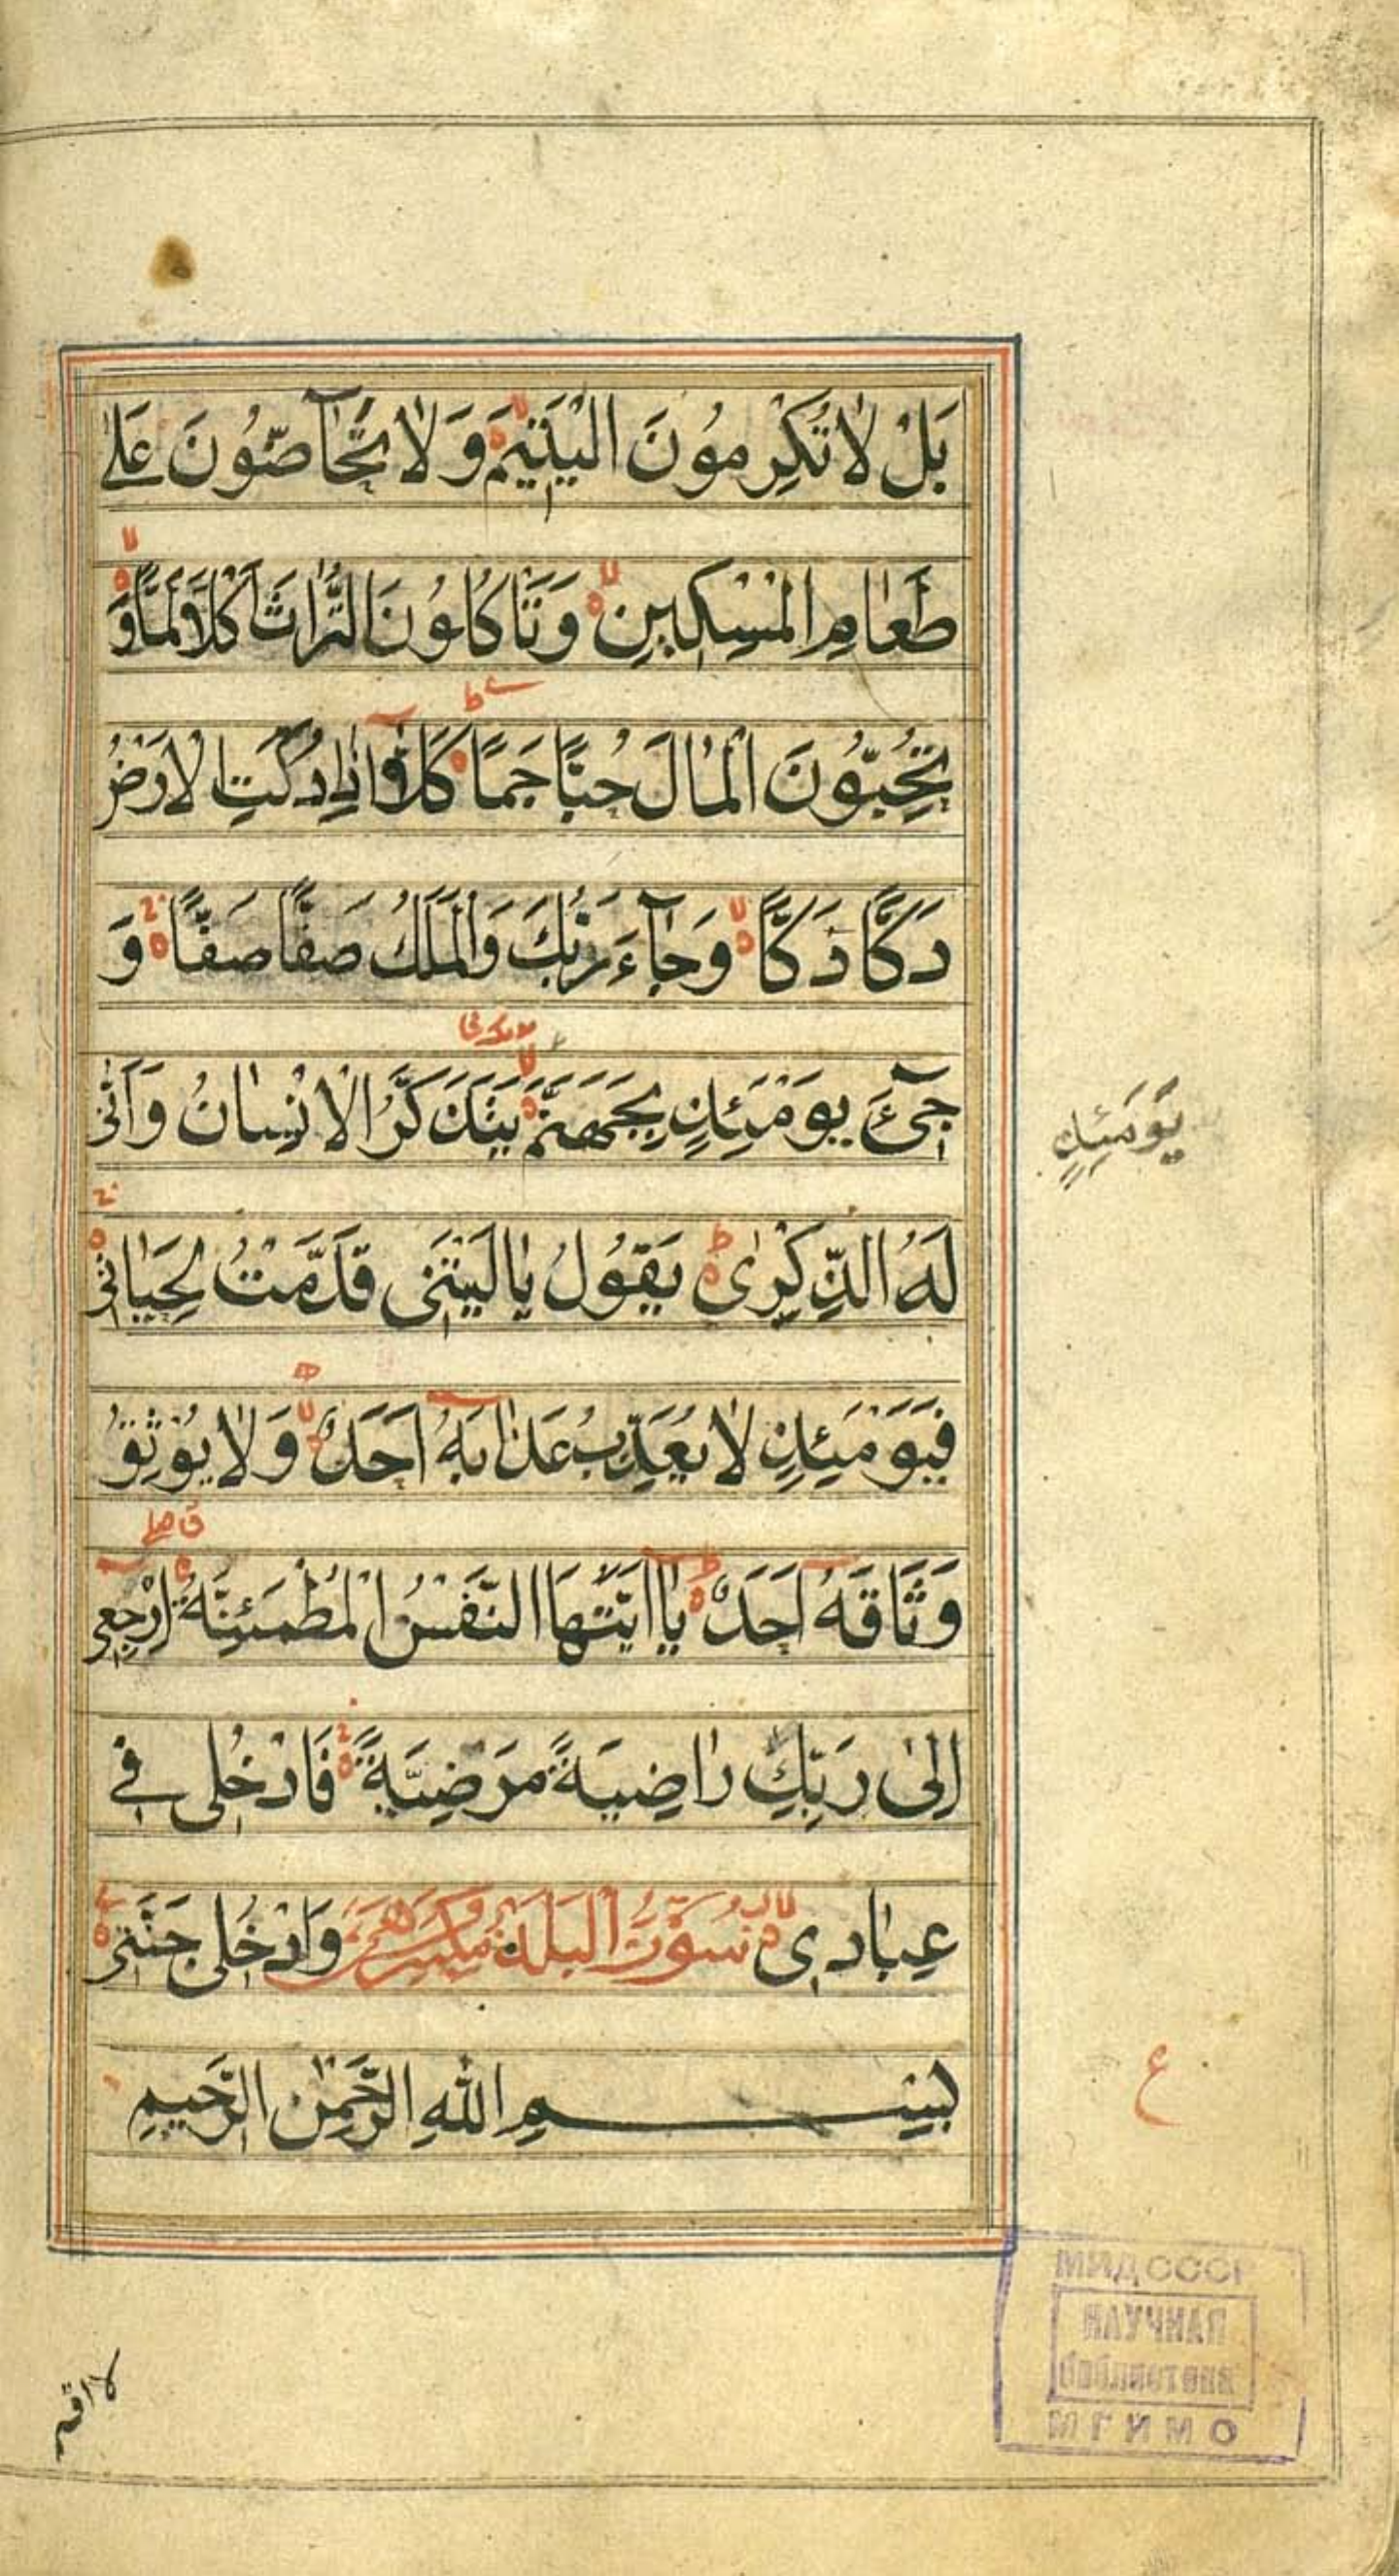 بَلْ لَا تُكْرِمُونَ الْيَتِيمَ وَلَا تَحَآضُّونَ عَلَىٰ
طَعَامِ الْمِسْكِينِ وَتَأْكُلُونَ التُّرَاثَ أَكْلًا لَمًّا وَ
تُحِبُّونَ الْمَالَ حُبًّا جَمًّا كَلَّا إِذَا دُكَّتِ الْأَرْضُ
دَكًّا دَكًّا وَجَآءَ رَبُّكَ وَالْمَلَكُ صَفًّا صَفًّا وَ
جِيٓءَ يَوْمَئِذٍ بِجَهَنَّمَ يَتَذَكَّرُ الْإِنْسَانُ وَأَنَّىٰ
يَوْمَئِذٍ
لَهُ الذِّكْرَىٰ يَقُولُ يَا لَيْتَنِي قَدَّمْتُ لِحَيَاتِي
فَيَوْمَئِذٍ لَا يُعَذِّبُ عَذَابَهُ أَحَدٌ وَلَا يُوثِقُ
وَثَاقَهُ أَحَدٌ يَا أَيَّتُهَا النَّفْسُ الْمُطْمَئِنَّةُ ارْجِعِي
إِلَىٰ رَبِّكِ رَاضِيَةً مَرْضِيَّةً فَادْخُلِي فِي
عِبَادِي سورة البلد مكية وَادْخُلِي جَنَّتِي
بِسْمِ اللَّهِ الرَّحْمَٰنِ الرَّحِيمِ
ع
لا اقسم
МИД СССР
НАУЧНАЯ
библиотека
МГИМО